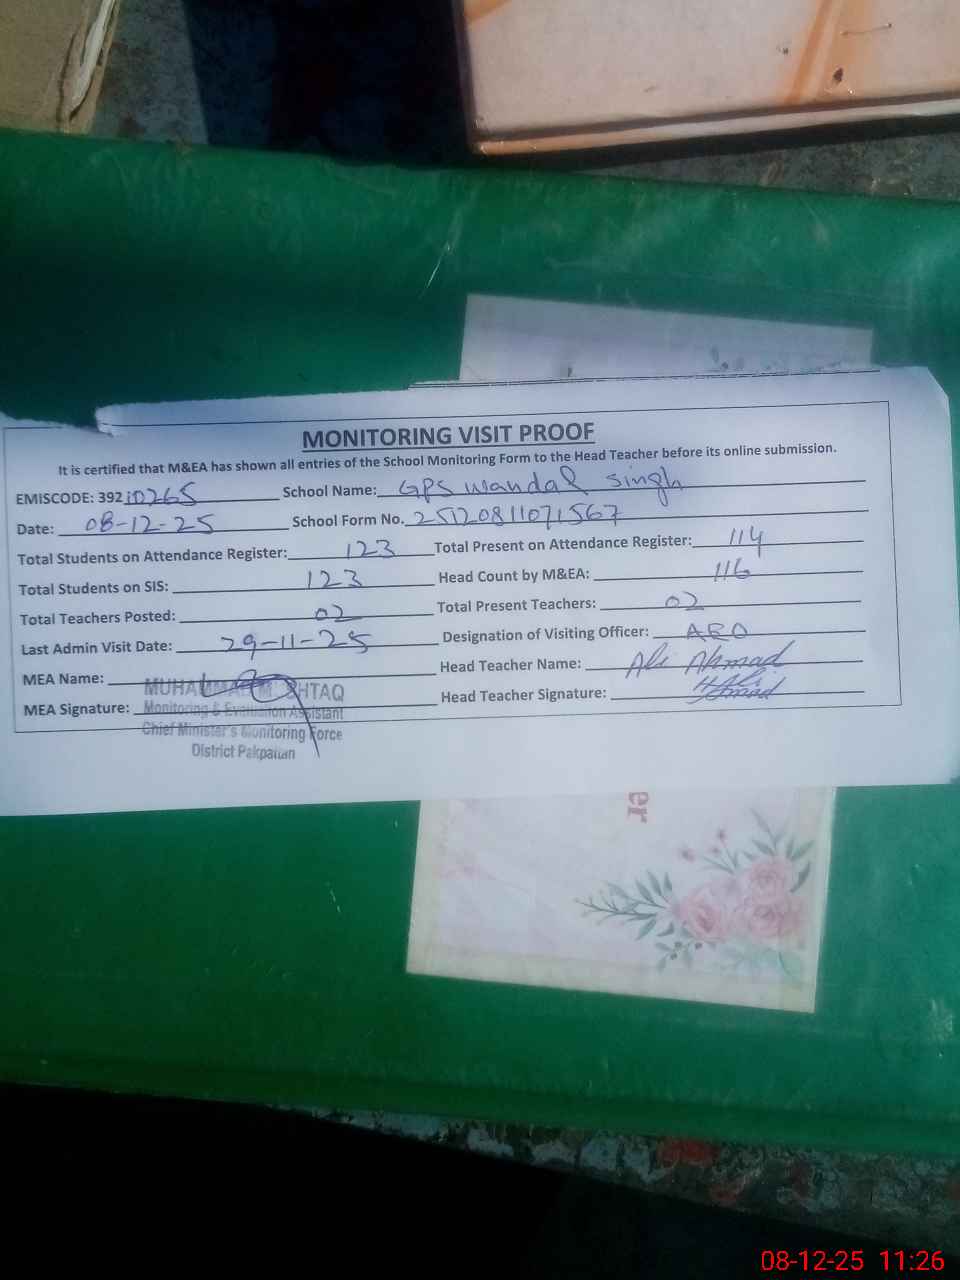 MONITORING VISIT PROOF
It is certified that M&EA has shown all entries of the School Monitoring Form to the Head Teacher before its online submission.
EMISCODE: 392 10265 School Name: GPS Wandal Singh
Date: 08-12-25 School Form No. 25120811071567
Total Students on Attendance Register: 123 Total Present on Attendance Register: 114
Total Students on SIS: 123 Head Count by M&EA: 116
Total Teachers Posted: 02 Total Present Teachers: 02
Last Admin Visit Date: 29-11-25 Designation of Visiting Officer: AEO
MEA Name: Head Teacher Name: Ali Ahmad
MUHAMMAD MUSHTAQ
MEA Signature: Head Teacher Signature: Ali Ahmad
Monitoring & Evaluation Assistant
Chief Minister's Monitoring Force
District Pakpattan
er
08-12-25 11:26